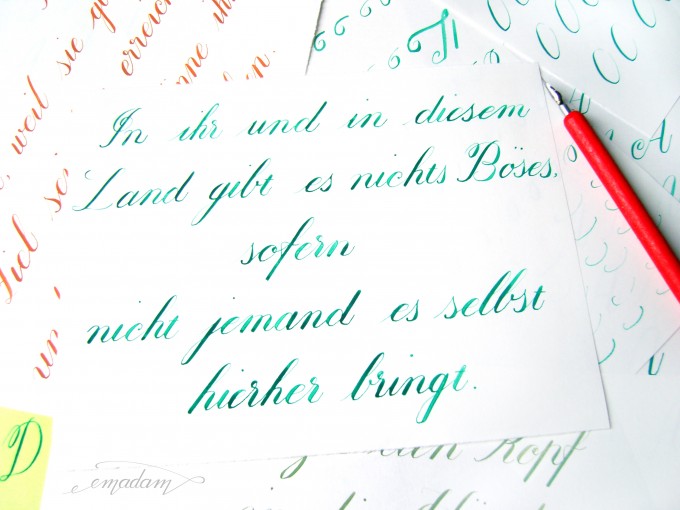 In ihr und in diesem
Land gibt es nichts Böses,
sofern
nicht jemand es selbst
hierher bringt.
weil sie
D
Kopf
A
emadam